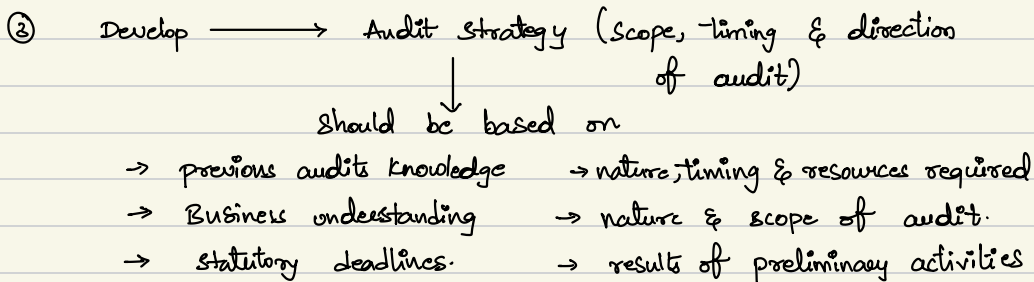 ③ Develop → Audit strategy (scope, timing & direction
of audit)
↓
Should be based on
→ previous audits knowledge → nature, timing & resources required
→ Business understanding → nature & scope of audit.
→ statutory deadlines. → results of preliminary activities